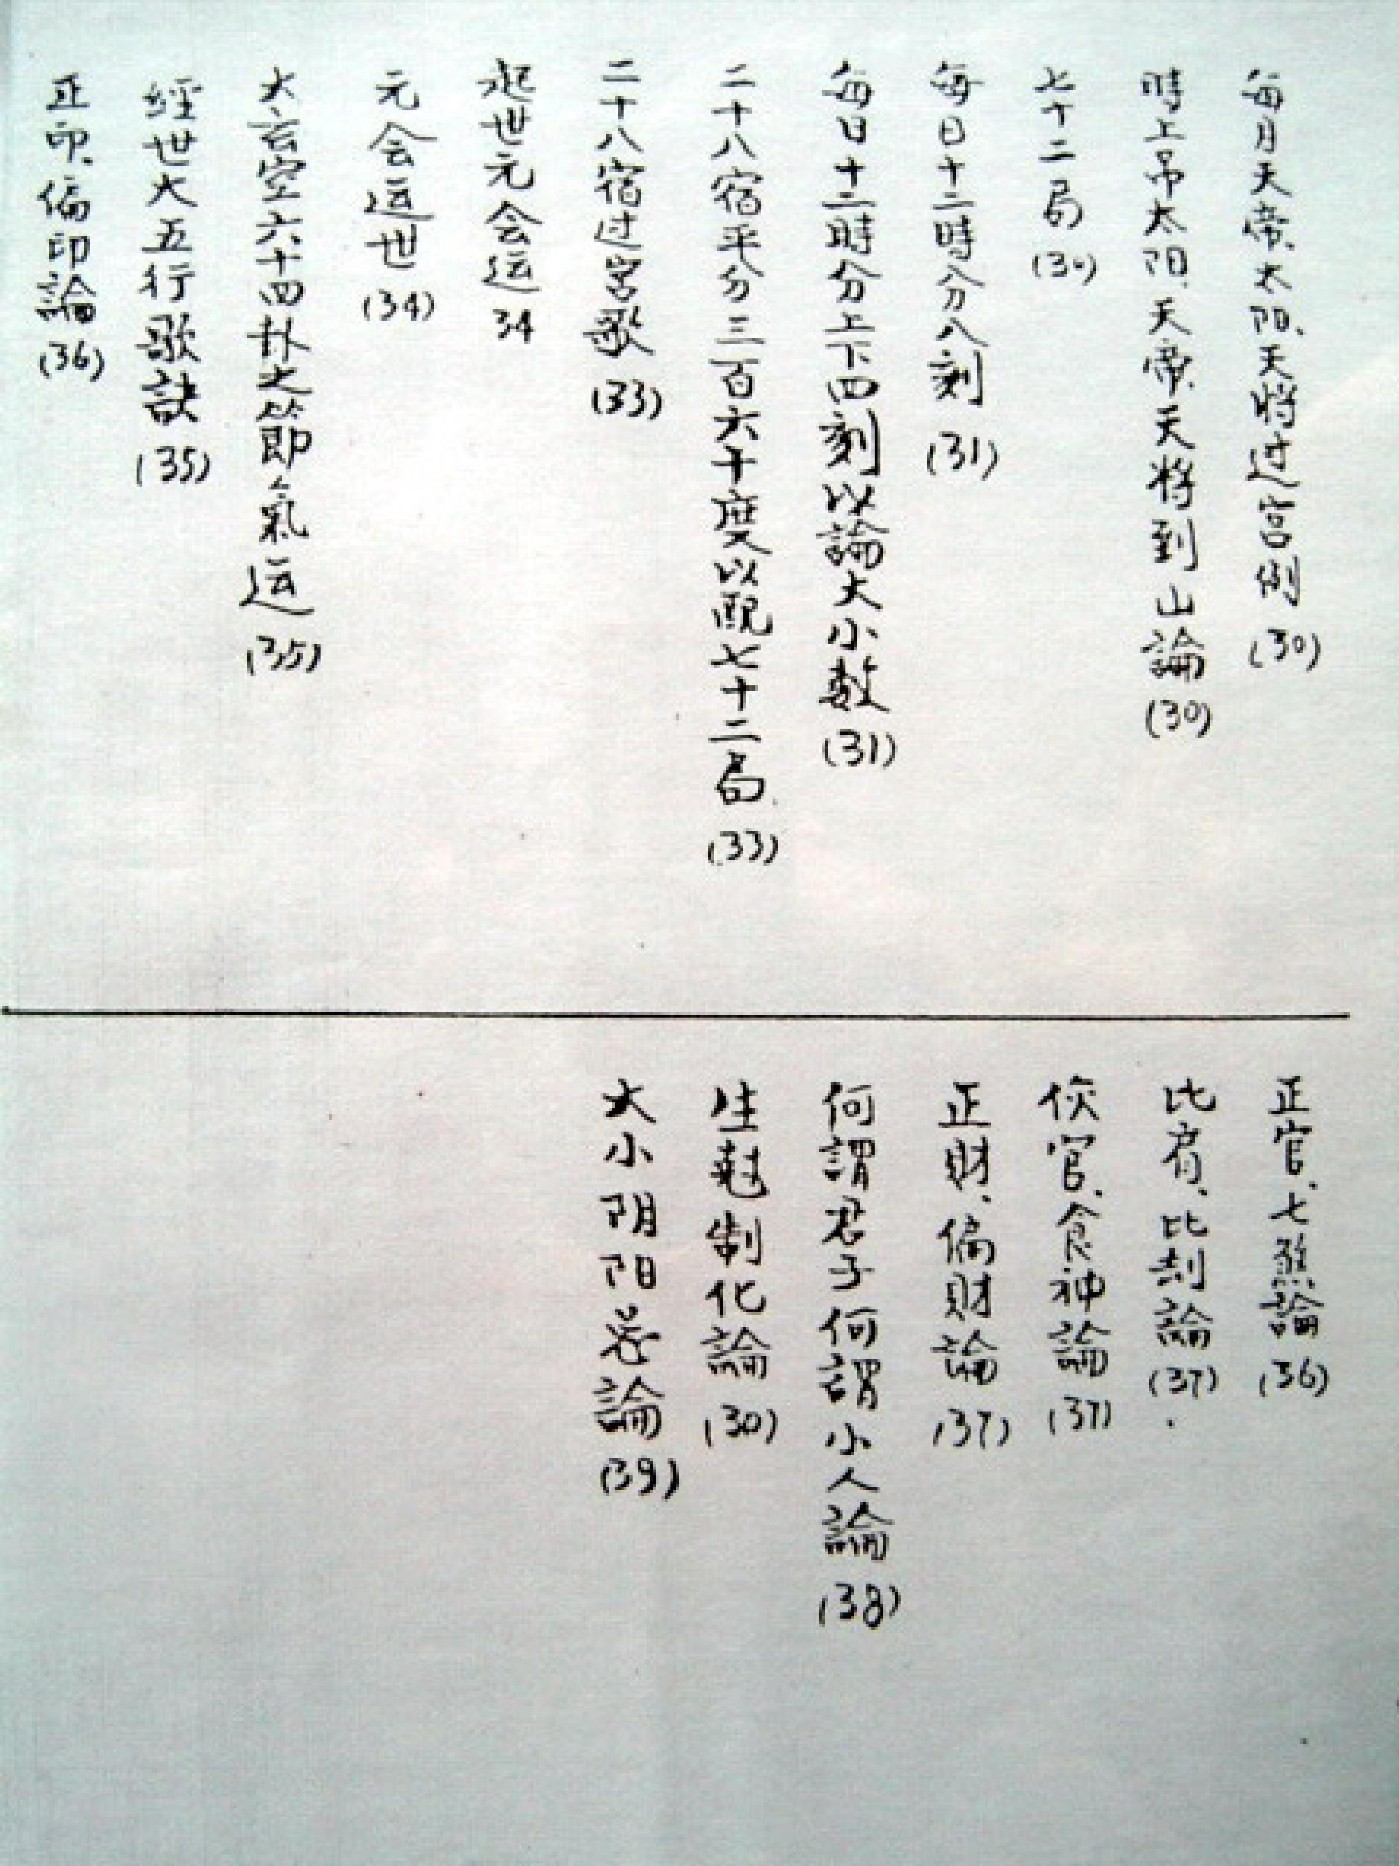 每月天帝、太阳、天將过宮例(30)
時上吊太阳、天帝、天將到山論(30)
七十二局(30)
每日十二時分八刻(31)
每日十二時分上下四刻以論大小数(31)
二十八宿平分三百六十度以配七十二局(33)
二十八宿过宮歌(33)
起世元会运34
元会运世(34)
大玄空六十四卦之節氣运(35)
經世大五行歌訣(35)
正印、偏印論(36)
正官、七煞論(36)
比肩、比刼論(37)
伤官、食神論(37)
正財、偏財論(37)
何謂君子何謂小人論(38)
生尅制化論(30)
大小阴阳差論(39)